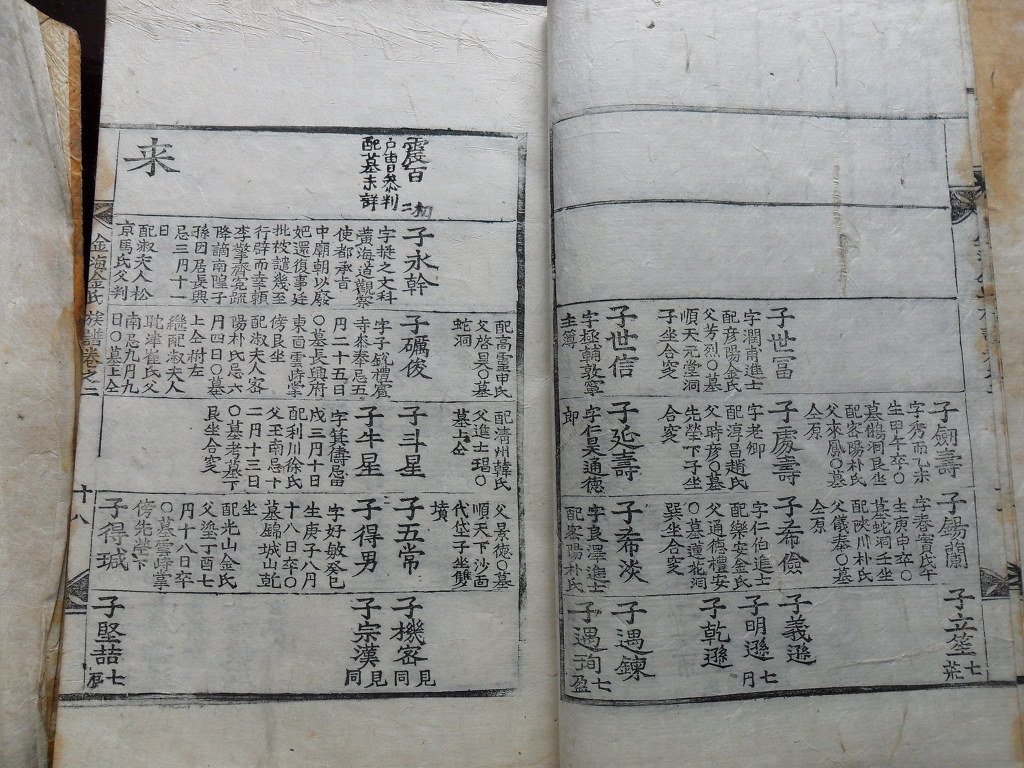 子世冨
字潤甫進士
配彦陽金氏
父芳烈〇墓
順天元堂洞
子坐合窆
子世信
字極輔敦寧
主簿
配高霊申氏
父啓昊〇墓
蛇洞
子劒壽
字秀而乙未
生甲午卒〇
墓鵲洞艮坐
配客陽朴氏
父來鳳〇墓
仝原
子慶壽
字老卿
配淳昌趙氏
父時彦〇墓
先塋下子坐
合窆
子延壽
字仁昊通德
郎
配淸州韓氏
父進士琩〇
墓上仝
子錫蘭
字春賓戊午
生庚申卒〇
墓蛇洞壬坐
配陜川朴氏
父儀泰〇墓
仝原
子希儉
字仁伯進士
配樂安金氏
父通德禮安
〇墓蓮花洞
巽坐合窆
子希淡
字良澤進士
配客陽朴氏
父景德〇墓
順天下沙面
代垈子坐雙
墳
子立笙
七
荒
子義遜
子明遜
子乾遜
七
円
子遇鍊
子遇洵
七
盈
震百
初
二
戸曹叅判
配墓未詳
来
子永幹
字挺之文科
黄海道觀察
使都承旨
中廟朝以廢
妃還復事廷
行辟而幸頼
李擎齋䆮疏
降謫南隍子
孫因居長興
忌三月十一
日
配淑夫人松
京馬氏父判
子礪俊
字子銳禮賓
寺叅奉忌五
月二十五日
〇墓長興府
東面雪峙掌
傍艮坐
配淑夫人客
陽朴氏忌六
月四日〇墓
上仝树左
繼配淑夫人
耽津崔氏父
南忌九月九
日〇墓上仝
子斗星
子牛星
字箕疇忌
戌三月十日
配利川徐氏
父玉南忌十
二月十三日
〇墓考墓下
艮坐合窆
子五常
子得男
字好敏癸巳
生庚子八月
十八日卒〇
墓錦城山乾
坐
配光山金氏
父塗丁酉七
月十八日卒
〇墓雪峙掌
傍先塋下
子得瑊
子機宻
見
同
子宗漢
見
同
子堅喆
七
金海金氏族譜卷之二
十八